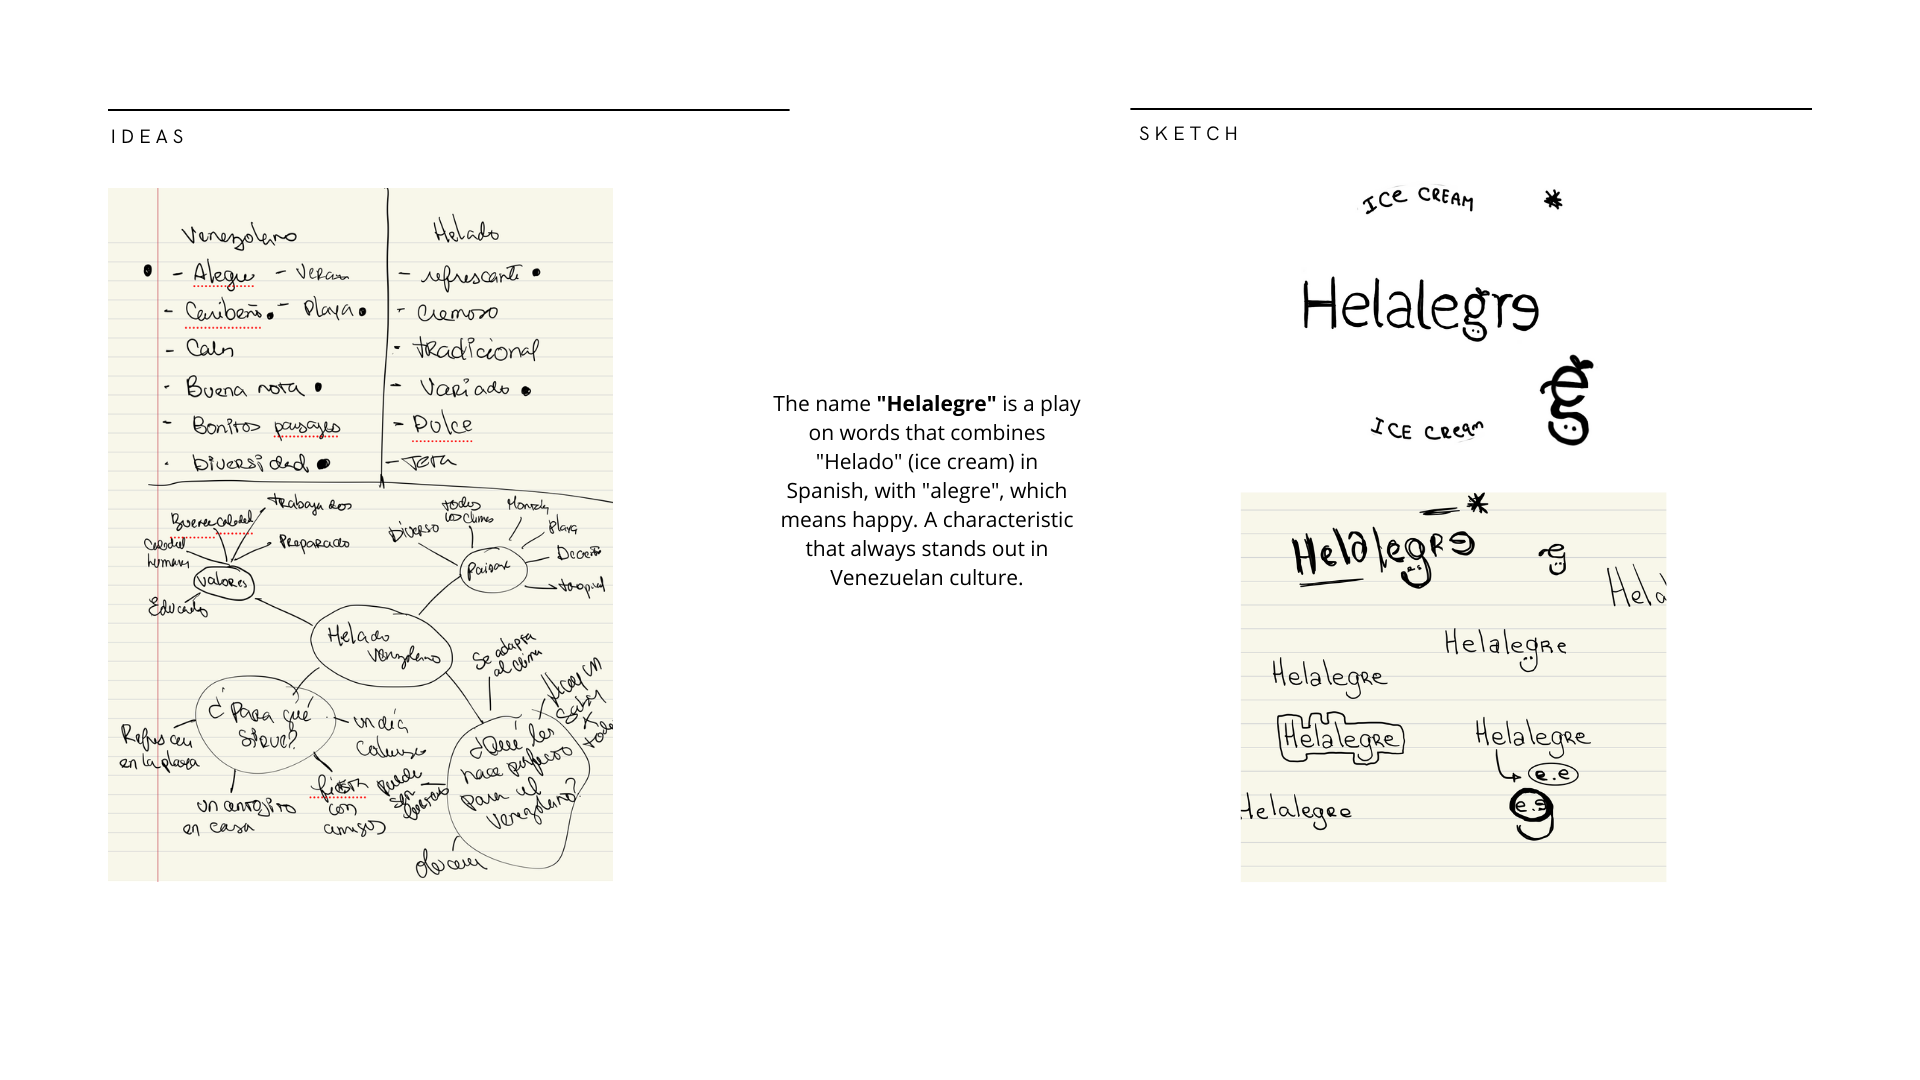 IDEAS
Venezolano
- Alegre - Verano
- Caribeño - Playa
- Calor
- Buena nota
- Bonitos paisajes
- Diversidad
Helado
- refrescante
- Cremoso
- tradicional
- Variado
- Dulce
- Teta
Trabajadores
Buena calidad
Preparado
Calidad humana
Valores
Educado
Diverso
todos los climas
Montaña
Playa
Desierto
tropical
Helado
Venezolano
¿Para qué
sirve?
Refrescar
en la playa
un antojito
en casa
fiesta
con
amigos
un día
caluroso
Se adapta
al clima
¿Qué los
hace perfecto
para el
venezolano?
The name "Helalegre" is a play
on words that combines
"Helado" (ice cream) in
Spanish, with "alegre", which
means happy. A characteristic
that always stands out in
Venezuelan culture.
SKETCH
ICe CREAM *
Helalegre
eg
ICE CReam
Helalegre
eg
Hela
Helalegre
Helalegre
Helalegre
Helalegre
e.e
Helalegre
e.e